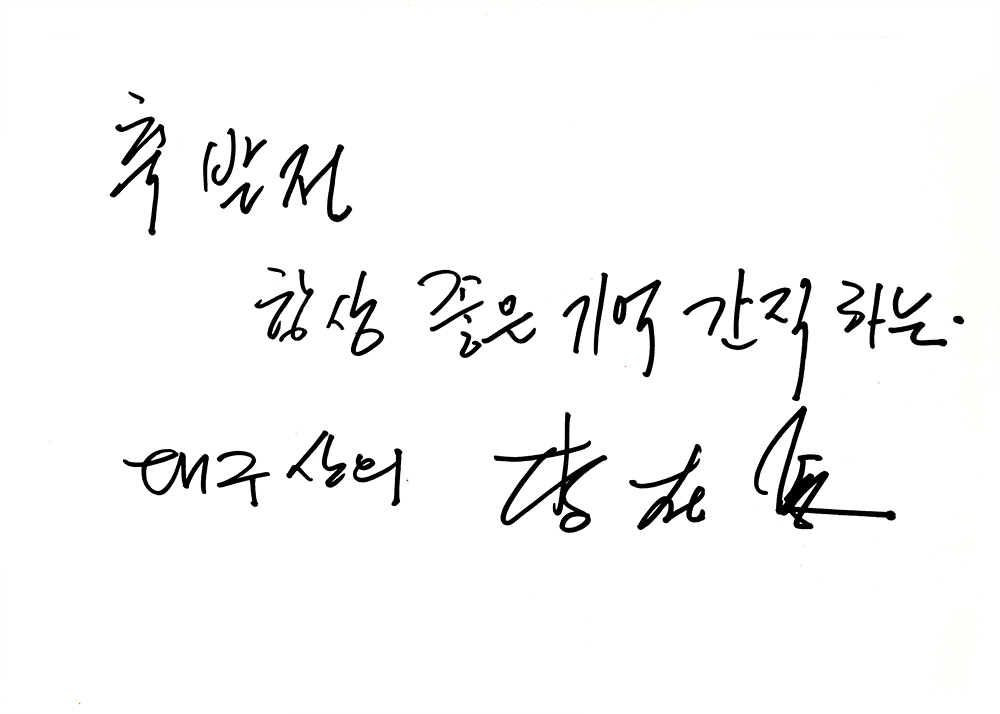 축 발전
항상 좋은 기억 간직하는.
대구상의